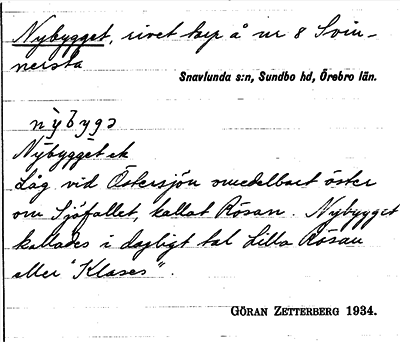 Nybygget, rivet torp å nr 8 Svin-
nersta
Snavlunda s:n, Sundbo hd, Örebro län.
nybygə
Nybygget ek
Låg vid Östersjön omedelbart öster
om Sjöfallet, kallat Rösan. Nybygget
kallades i dagligt tal Lilla Rösan
eller "Klases".
GÖRAN ZETTERBERG 1934.